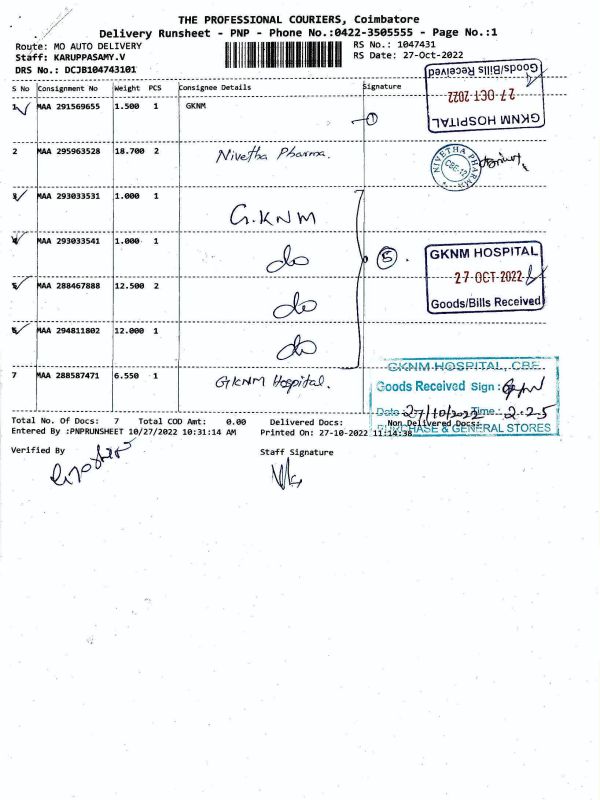 THE PROFESSIONAL COURIERS, Coimbatore
Delivery Runsheet - PNP - Phone No.:0422-3505555 - Page No.:1
Route: MO AUTO DELIVERY
RS No.: 1047431
Staff: KARUPPASAMY.V
RS Date: 27-Oct-2022
DRS No.: DCJB104743101
Goods/Bills Received
27 OCT 2022
GKNM HOSPITAL
S No Consignment No Weight PCS Consignee Details Signature
1 MAA 291569655 1.500 1 GKNM
1
2 MAA 295963528 18.700 2 Nivetha Pharma.
NIVETHA PHARMA
CBE-12
3 MAA 293033531 1.000 1 G.KNM
4 MAA 293033541 1.000 1 do
5.
GKNM HOSPITAL
27 OCT 2022
Goods/Bills Received
5 MAA 288467888 12.500 2 do
6 MAA 294811802 12.000 1 do
7 MAA 288587471 6.550 1 GKNM Hospital.
GKNM HOSPITAL, CBE.
Goods Received Sign :
Date 27/10/2022 Time: 2.25
PURCHASE & GENERAL STORES
Total No. Of Docs: 7 Total COD Amt: 0.00 Delivered Docs: Non Delivered Docs:
Entered By :PNPRUNSHEET 10/27/2022 10:31:14 AM Printed On: 27-10-2022 11:14:38
Verified By
Staff Signature